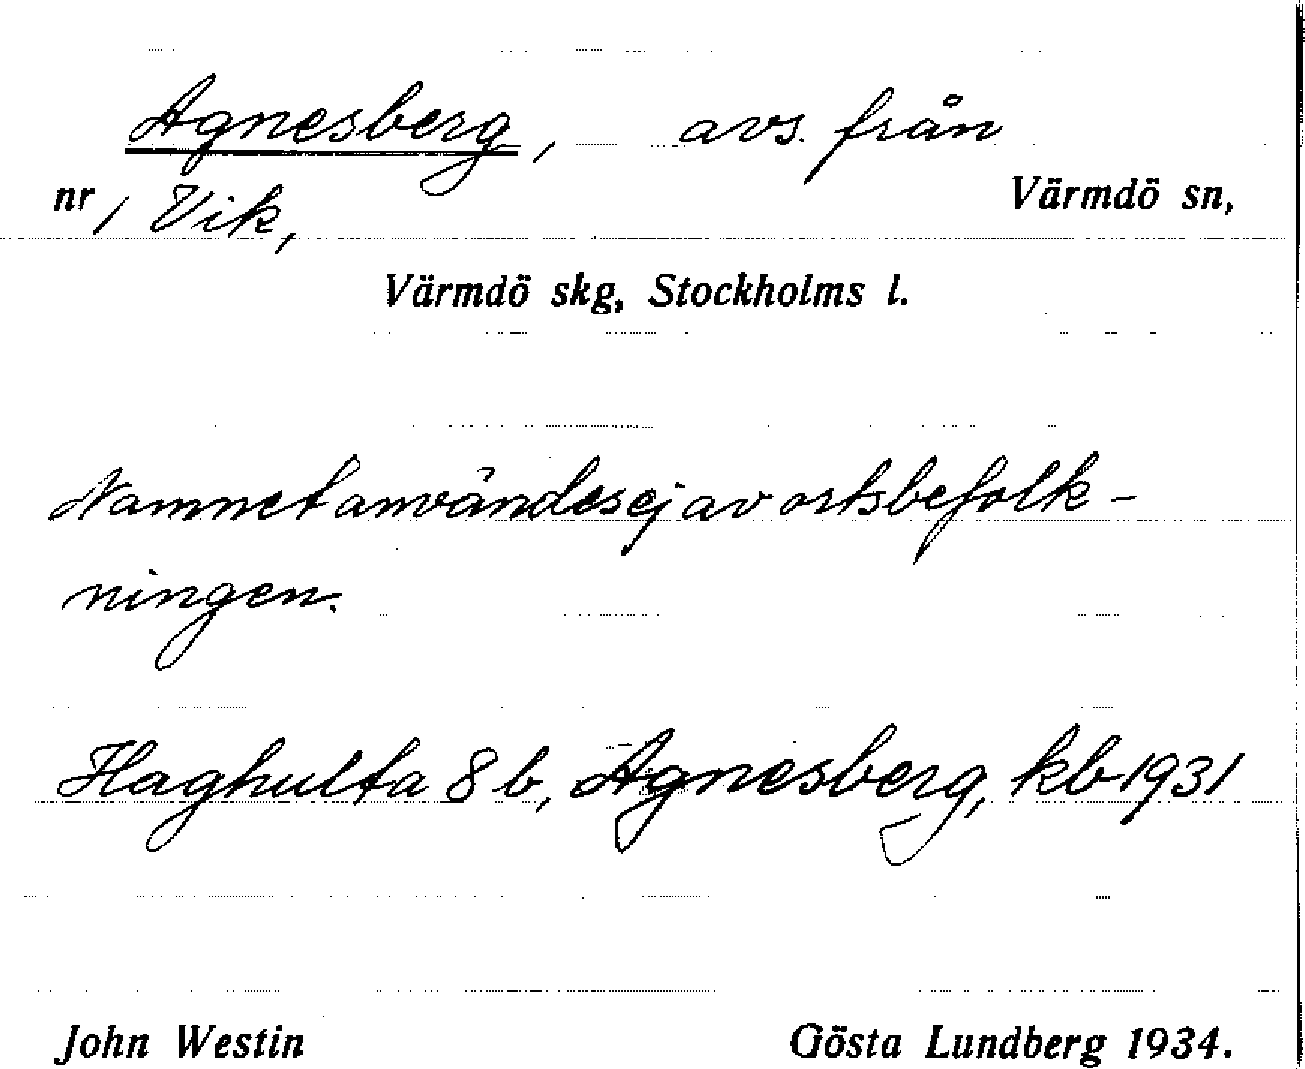 Agnesberg, avs. från
nr 1 Vik, Värmdö sn,
Värmdö skg, Stockholms l.
Namnet användes ej av ortsbefolk-
ningen.
Haghulta 8 b, Agnesberg, kb 1931
John Westin Gösta Lundberg 1934.